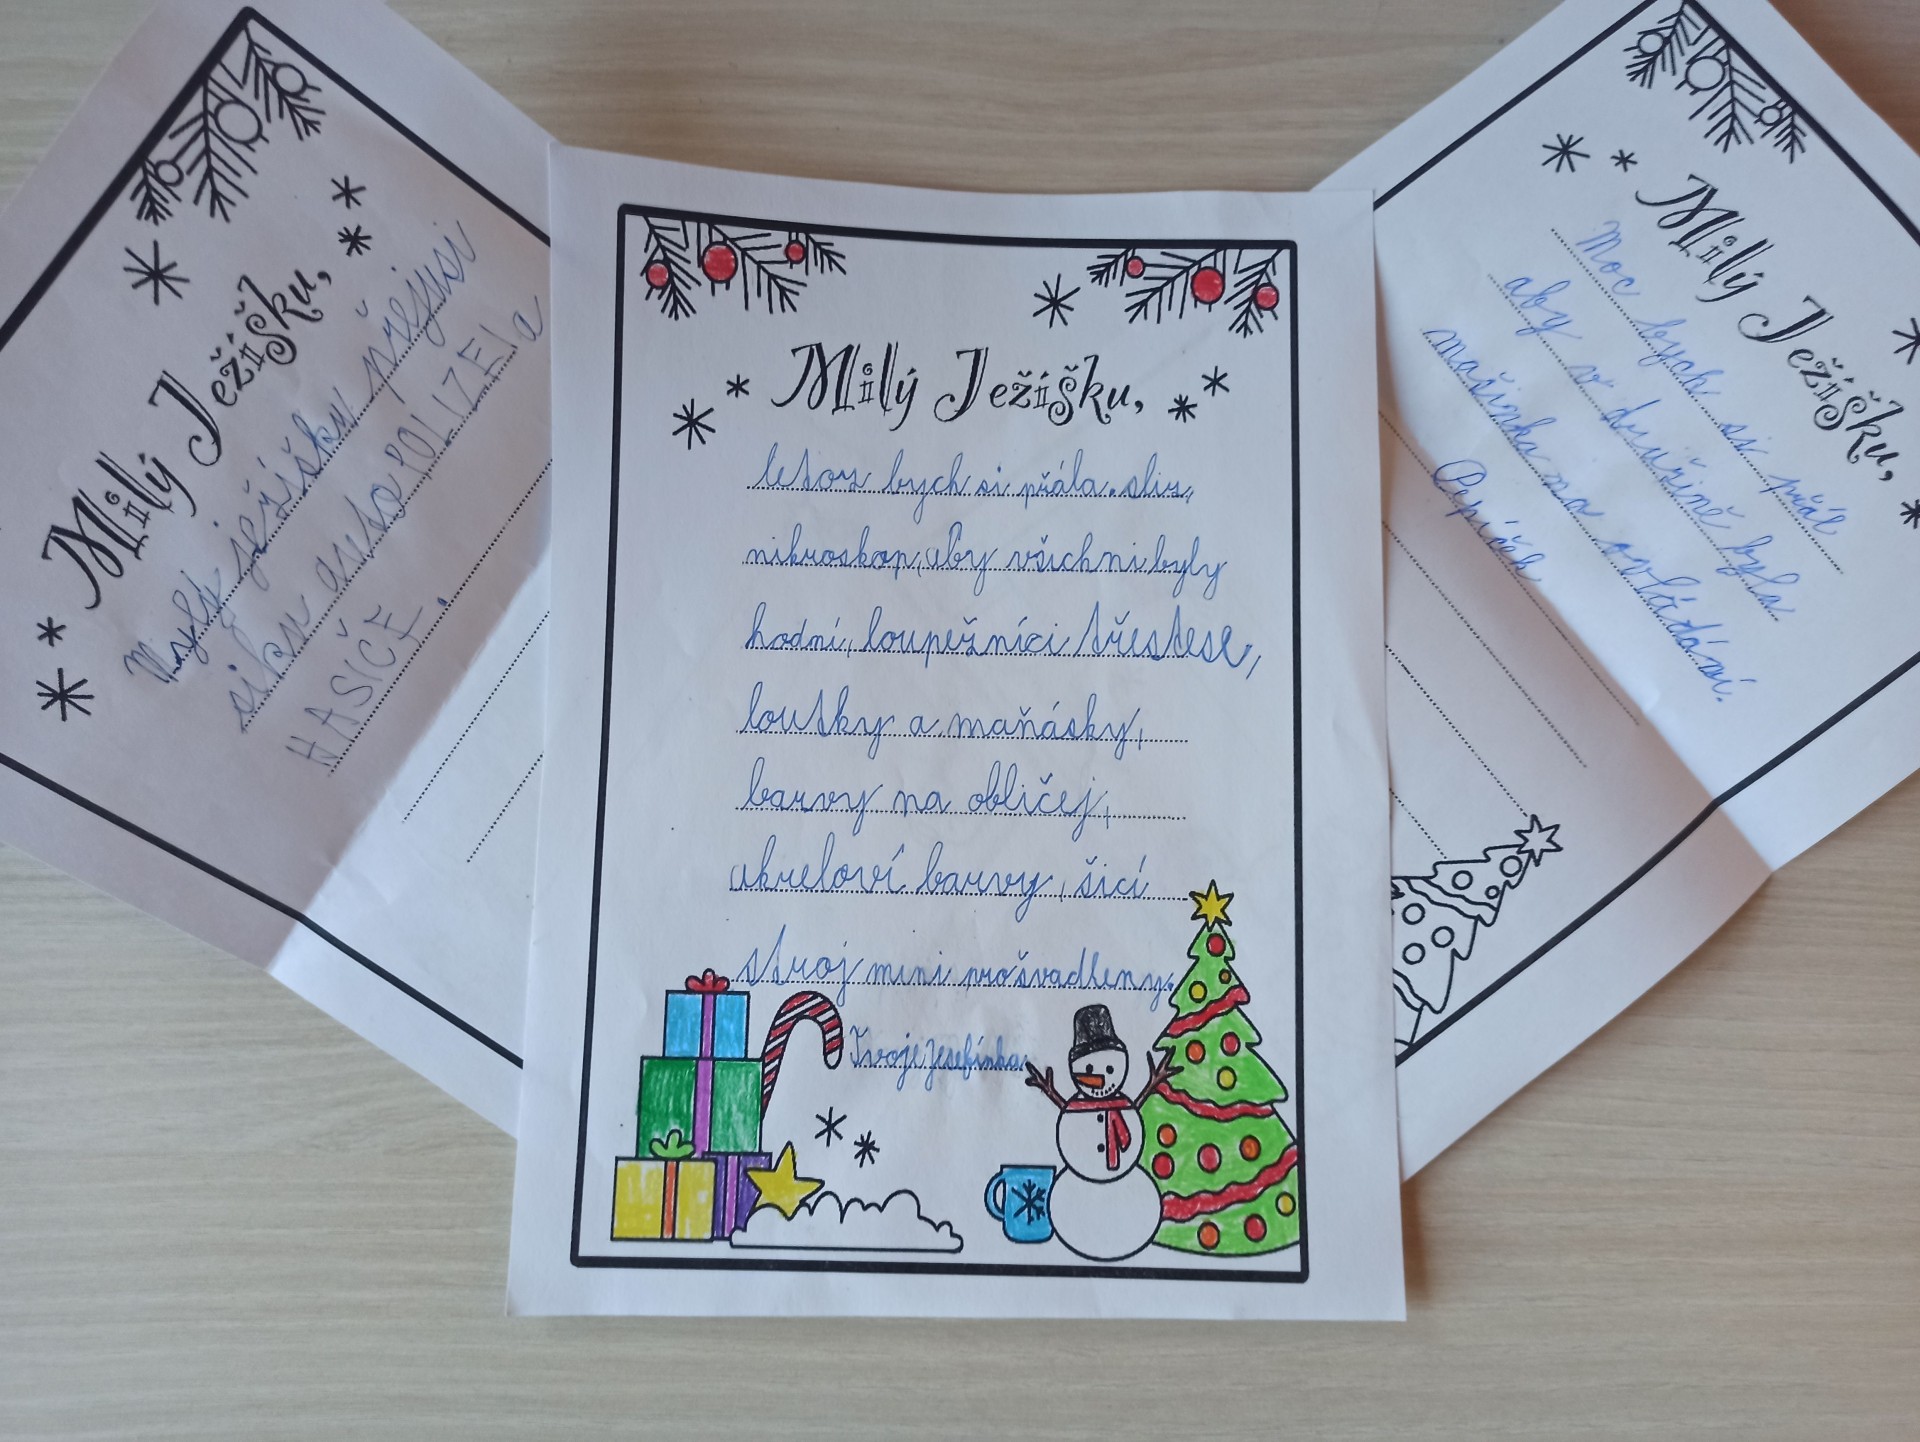 Milý Ježíšku,
Mylý ježíšku přejisi
siku auto POLIZEI a
HASIČE.
Milý Ježíšku,
letos bych si přála. sliz,
mikroskop, aby všichni byly
hodní, loupežníci třestese,
loutky a maňásky,
barvy na obličej,
akreloví barvy, šicí
stroj mini prošvadleny.
Tvoje Josefínka
Milý Ježíšku,
Moc bych si přál
aby v družině byla
mašinka na ovládání.
Pepíček